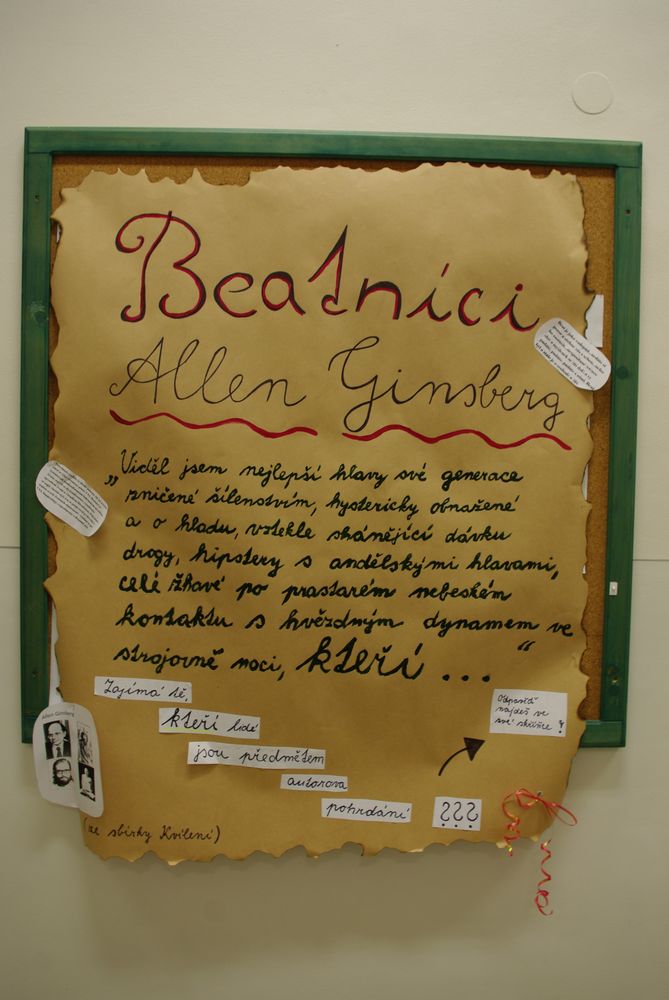 Beatníci
Allen Ginsberg
„Viděl jsem nejlepší hlavy své generace
zničené šílenstvím, hystericky obnažené
a o hladu, vztekle shánějící dávku
drogy, hipstery s andělskými hlavami,
celé žhavé po prastarém nebeském
kontaktu s hvězdným dynamem ve
strojovně noci, kteří ..."
Zajímá tě,
kteří lidé
jsou předmětem
autorova
pohrdání
???
Odpověď
najdeš ve
své skříňce!
Allen Ginsberg
(ze sbírky Kvílení)